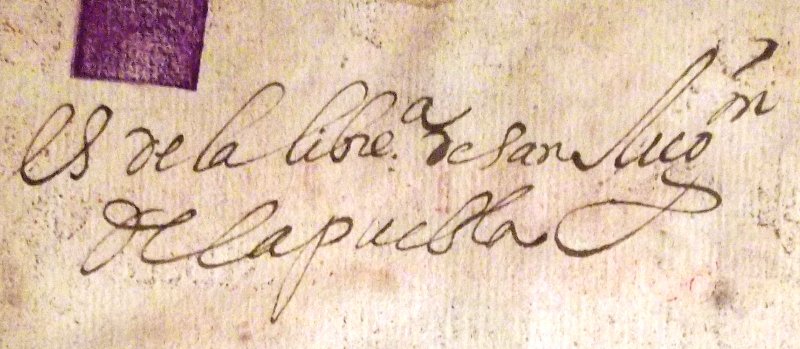 es de la libre.ª de san Augⁿ
de la puebla